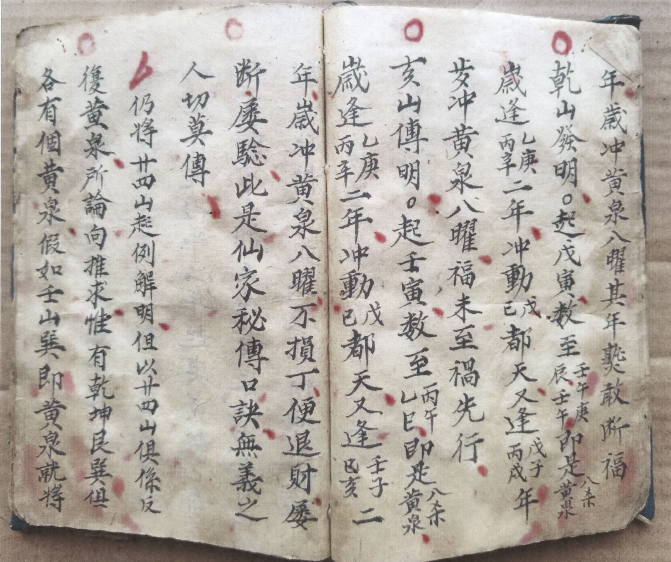 年歲冲黄泉八曜其年㷫敢断福
乾山發明。起戊寅数至壬午庚辰壬午即是八杀黄泉
歲逢乙庚丙辛二年冲動戊己都天又逢戊子丙戌年
歲冲黄泉八曜福未至禍先行
亥山傳明。起壬寅数至丙午乙巳即是八杀黄泉
歲逢乙庚丙辛二年冲動戊己都天又逢壬子己亥二
年歲冲黄泉八曜不損丁便退財屡
断屡騐此是仙家秘傳口訣無義之
人切莫傳
仍將廿四山起例解明但以廿四山俱係反
復黄泉所論向推求惟有乾坤艮巽俱
各有個黄泉假如壬山巽即黄泉就將